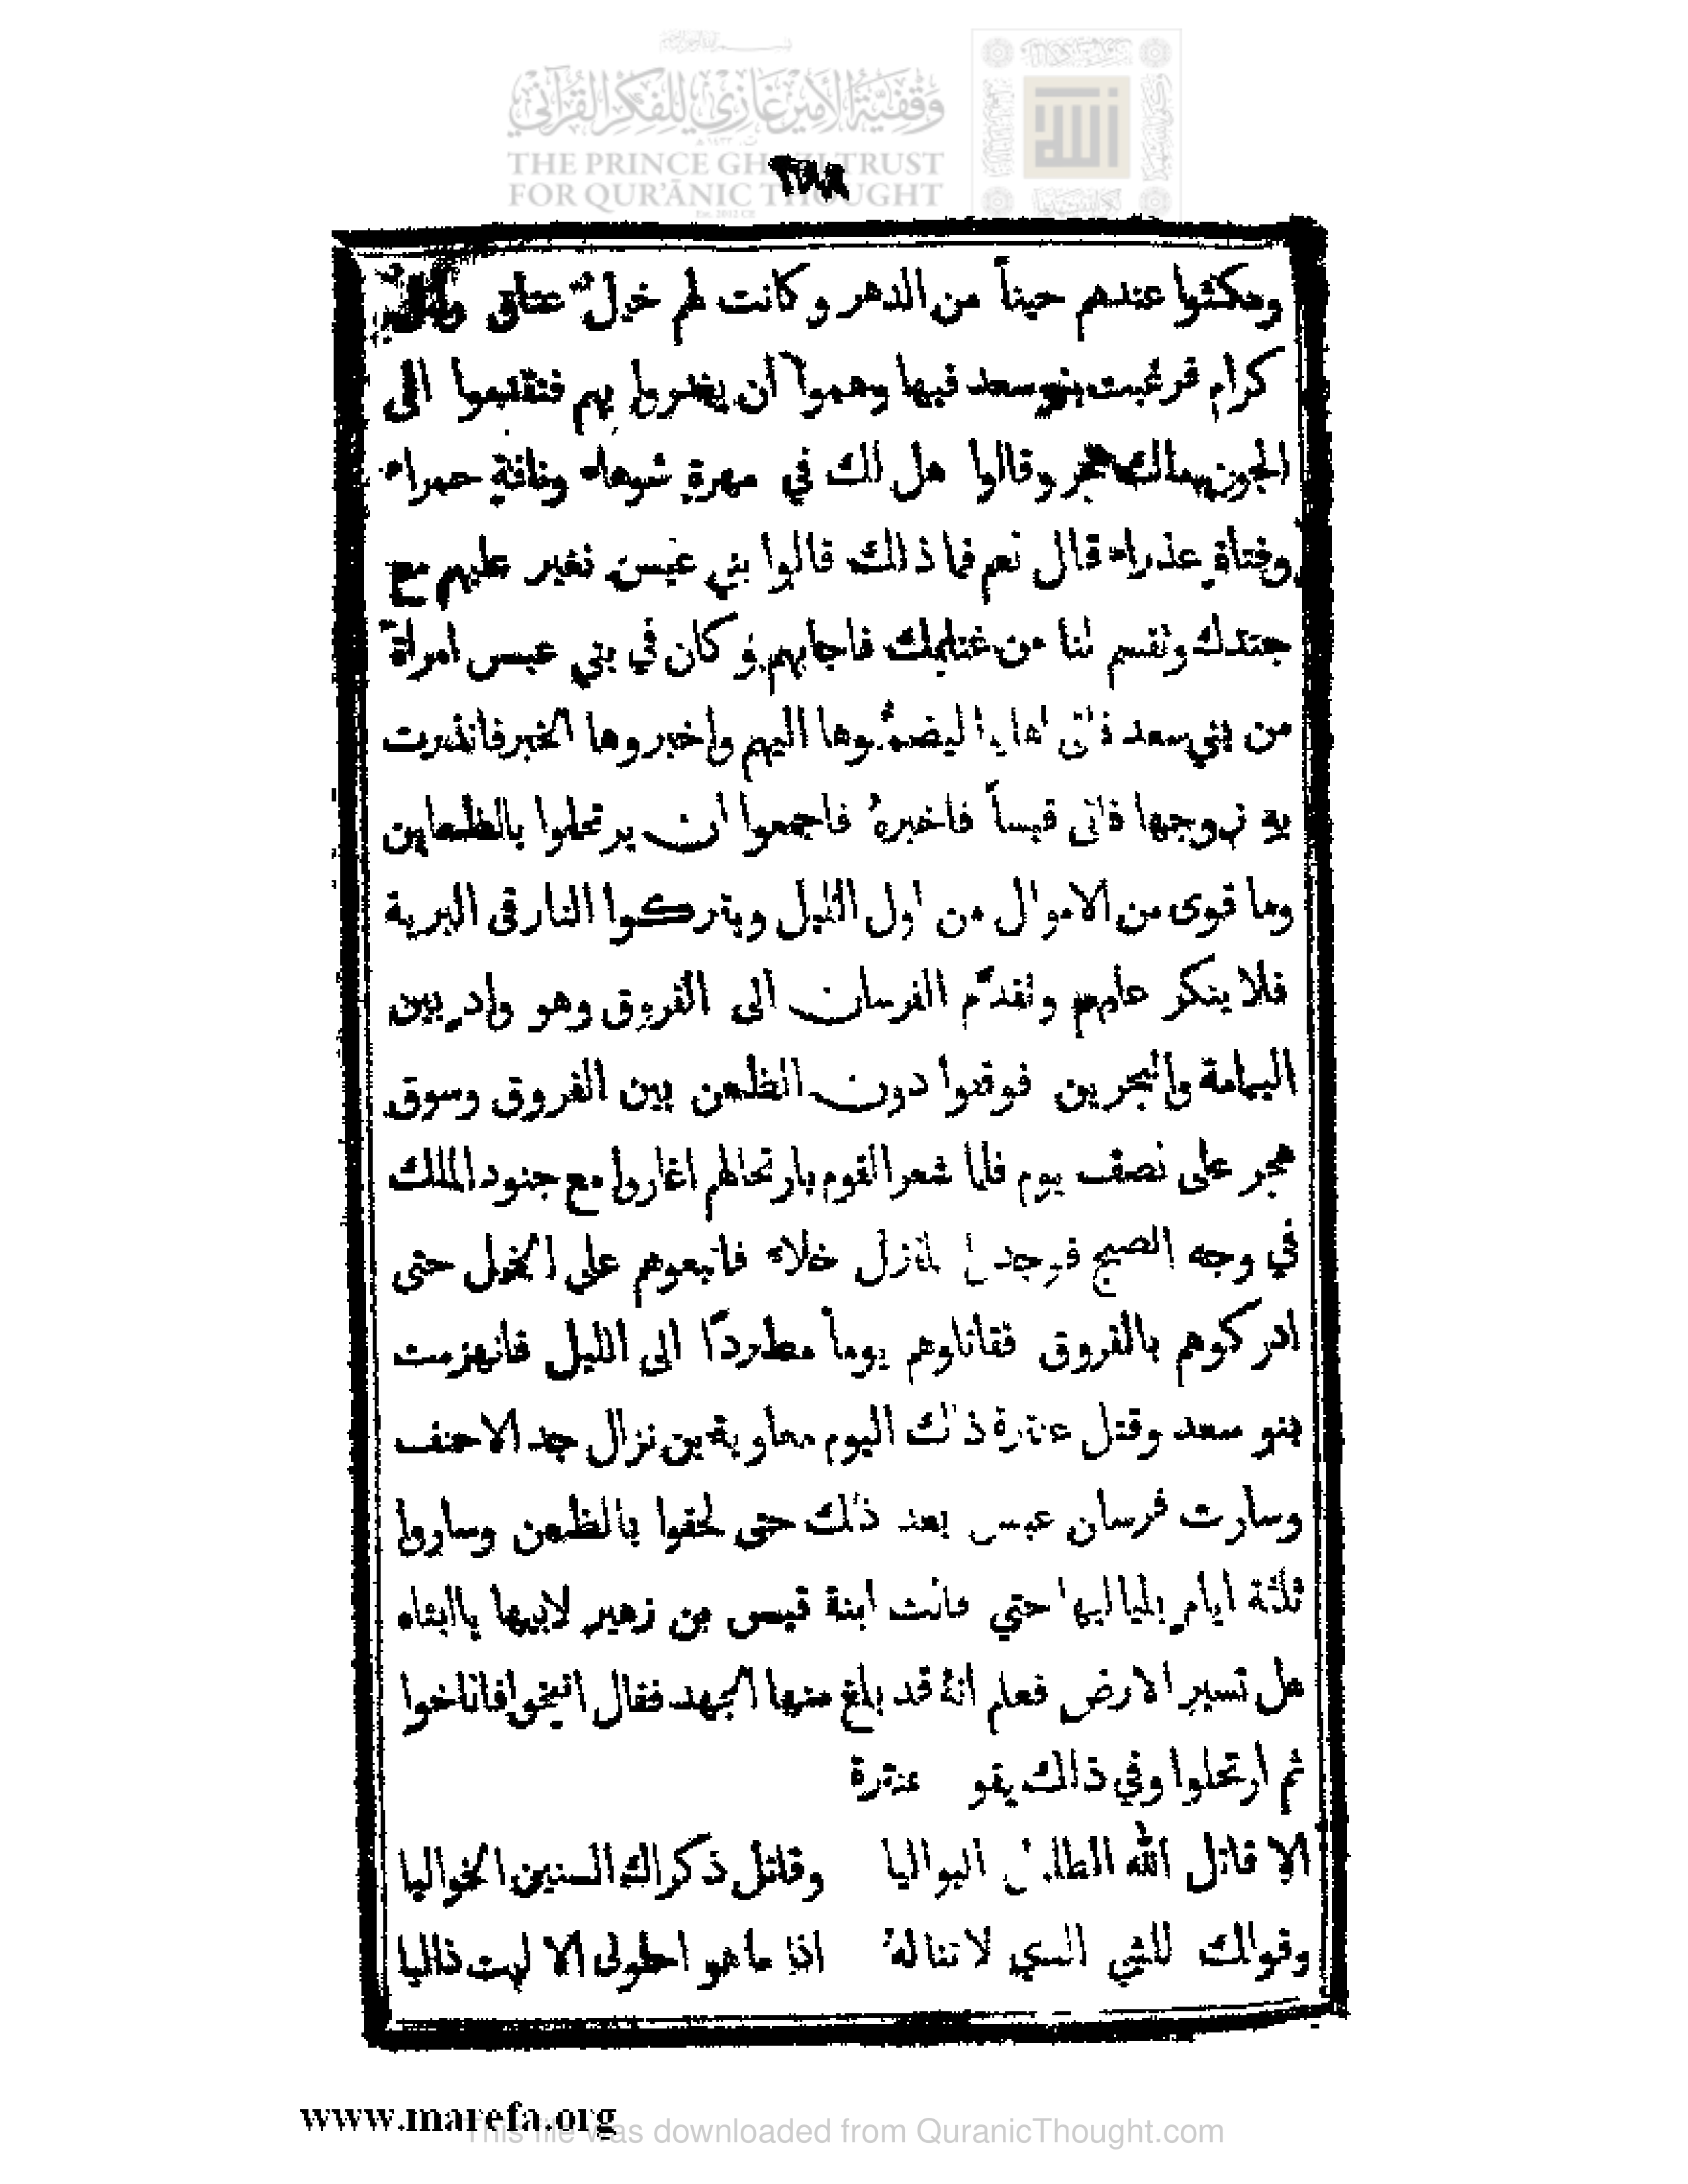 وقفية الأمير غازي للفكر القرآني
THE PRINCE GHAZI TRUST
FOR QUR'ĀNIC THOUGHT
ومكثوا عندهم حيناً من الدهر وكانت لهم خيلٌ عتاق
كرام فرغبت بنو سعد فيها وهموا ان يغدروا بهم فتقدموا الى
الجون ملك هجر وقالوا هل لك في مهرة شوهاء وناقةٍ حمراء
وفتاةٍ عذراء قال نعم فما ذلك قالوا بني عبس نغير عليهم مع
جندك ونقسم لنا من غنايمك فاجابهم وكان في بني عبس امراةٌ
من بني سعد فاتى اهلها ليضموها اليهم واخبروها الخبر فانذرت
به زوجها فاتى قيساً فاخبرهُ فاجمعوا ان يرتحلوا بالظعاين
وما قوى من الاموال من اول الليل ويتركوا النار فى البرية
فلا ينكر عليهم ونقدَّم الفرسان الى الفروق وهو وادٍ بين
اليمامة والبحرين فوقفوا دون الظعن بين الفروق وسوق
هجر على نصف يوم فلما شعر القوم بارتحالهم اغاروا مع جنود الملك
في وجه الصبح فوجدوا المنزل خلاء فاتبعوهم على الخيل حتى
ادركوهم بالفروق فقاتلوهم يوماً مطردًا الى الليل فانهزمت
بنو سعد وقتل عنترة ذلك اليوم معاوية بن نزال جد الاحنف
وسارت فرسان عبس بعد ذلك حتى لحقوا بالظعن وساروا
ثلثة ايام بلياليها حتي قالت ابنة قيس بن زهير لابيها ياابتاه
هل تسير الارض فعلم انهُ قد بلغ منها الجهد فقال انيخوا فاناخوا
ثم ارتحلوا وفي ذالك يقو عنترة
الا قاتل الله الطلول البواليا وقاتل ذكراك السنين الخواليا
وقولك للشي الذي لا تنالهُ اذا ما هو احلولى الا ليت ذاليا
www.marefa.org
This file was downloaded from QuranicThought.com